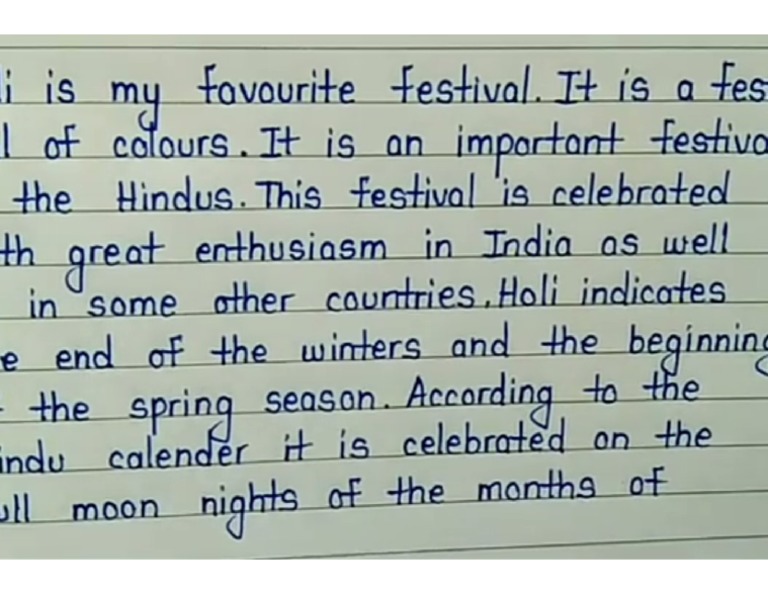 i is my favourite festival. It is a fes
l of colours. It is an important festiva
the Hindus. This festival is celebrated
th great enthusiasm in India as well
in some other countries. Holi indicates
e end of the winters and the beginning
the spring season. According to the
indu calender it is celebrated on the
ull moon nights of the months of